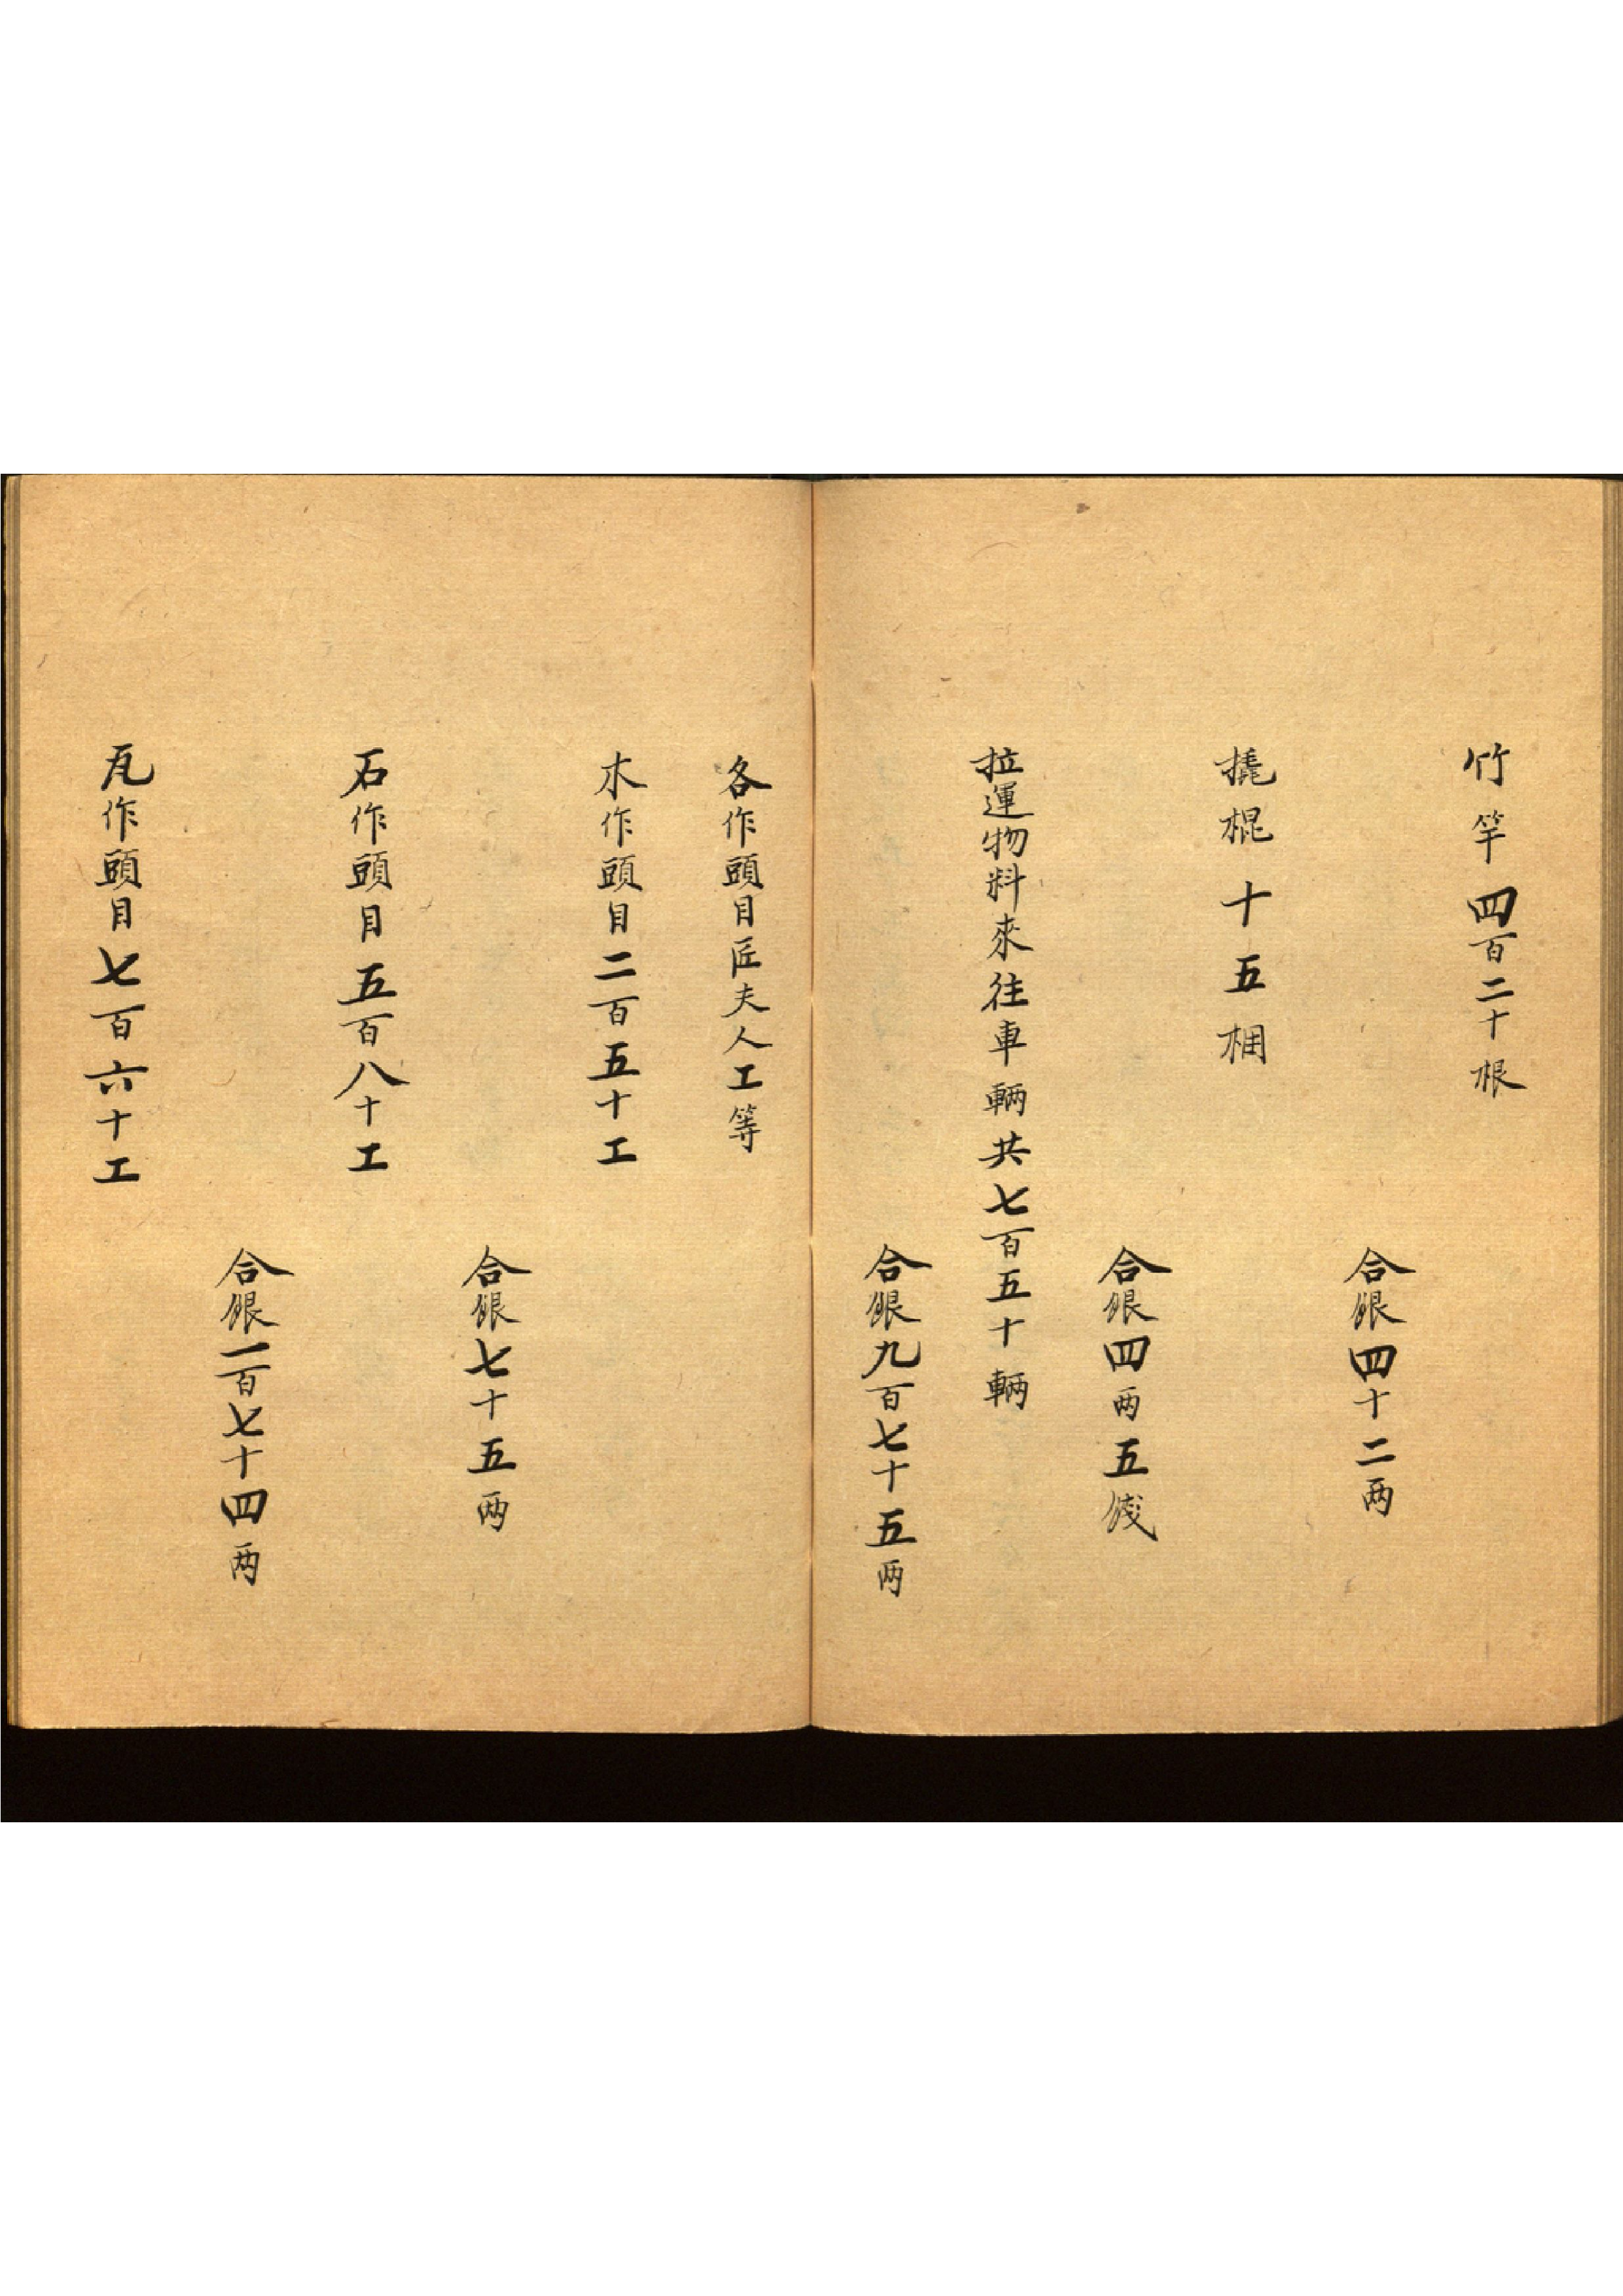 竹竿四百二十根
合銀四十二两
撬棍十五梱
合銀四两五錢
拉運物料來往車輛共七百五十輛
合銀九百七十五两
各作頭目匠夫人工等
木作頭目二百五十工
合銀七十五两
石作頭目五百八十工
合銀一百七十四两
瓦作頭目七百六十工